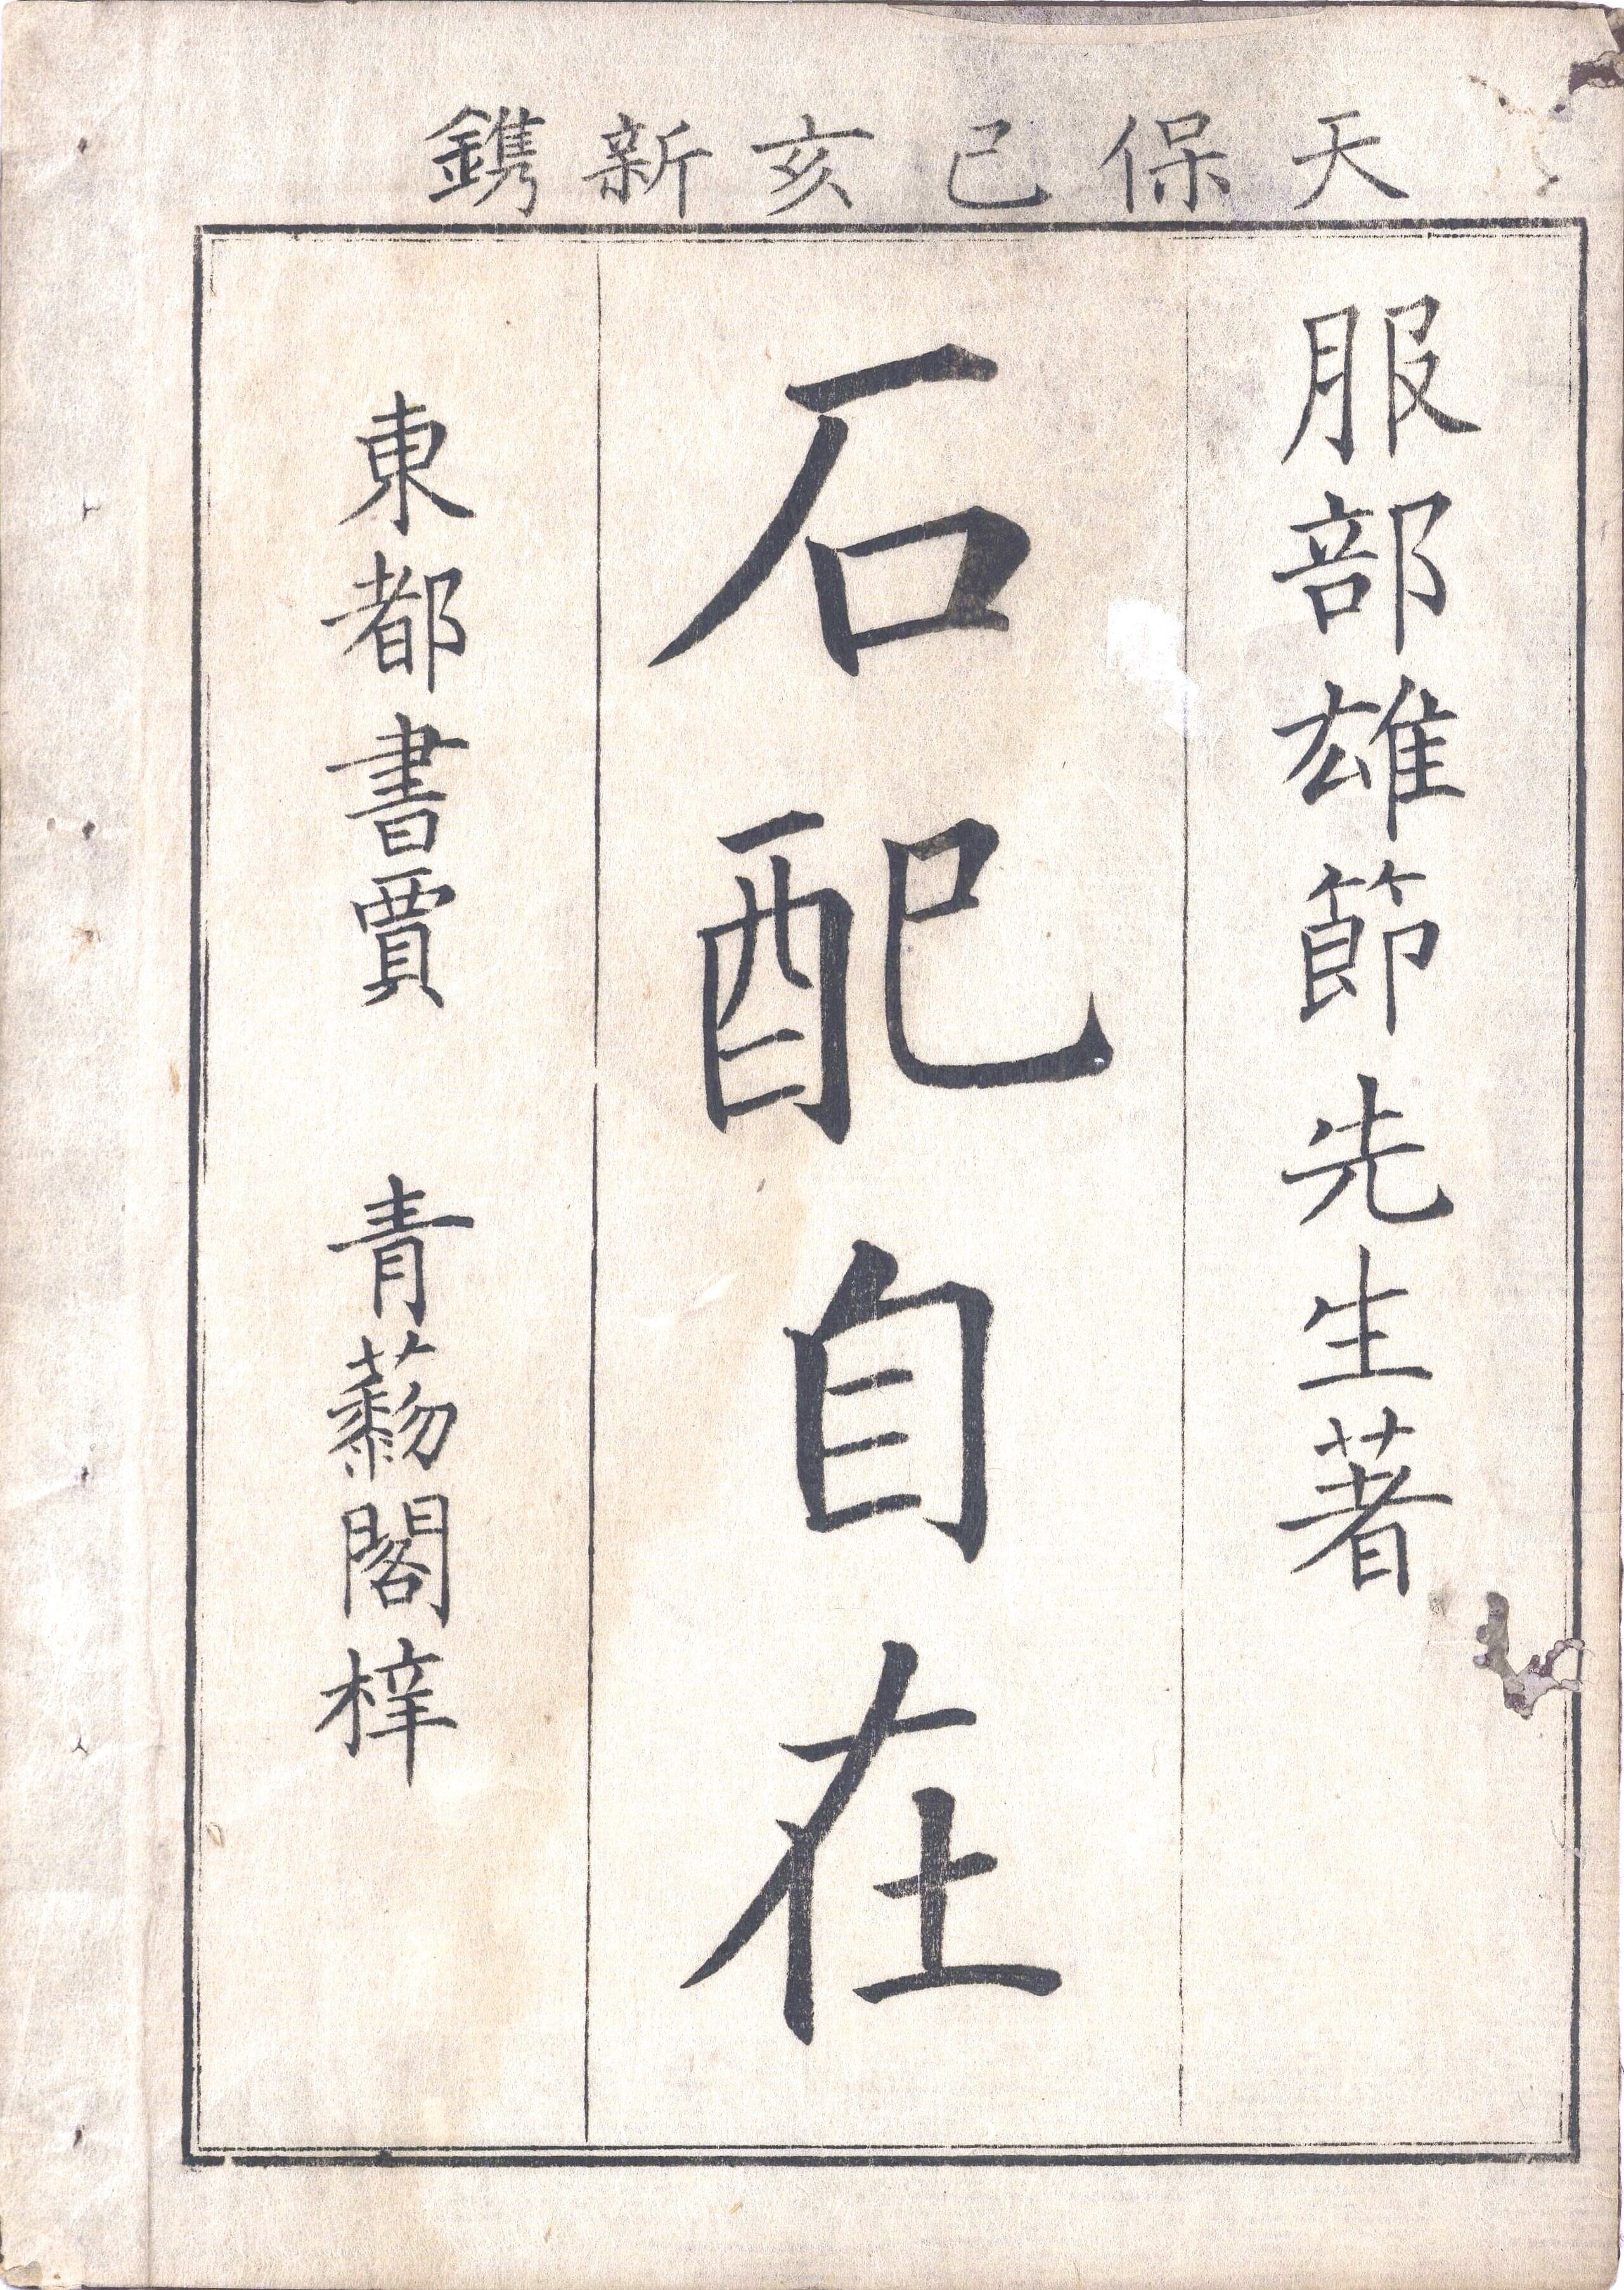 天保己亥新鐫
服部雄節先生著
石配自在
東都書賈 青藜閣梓